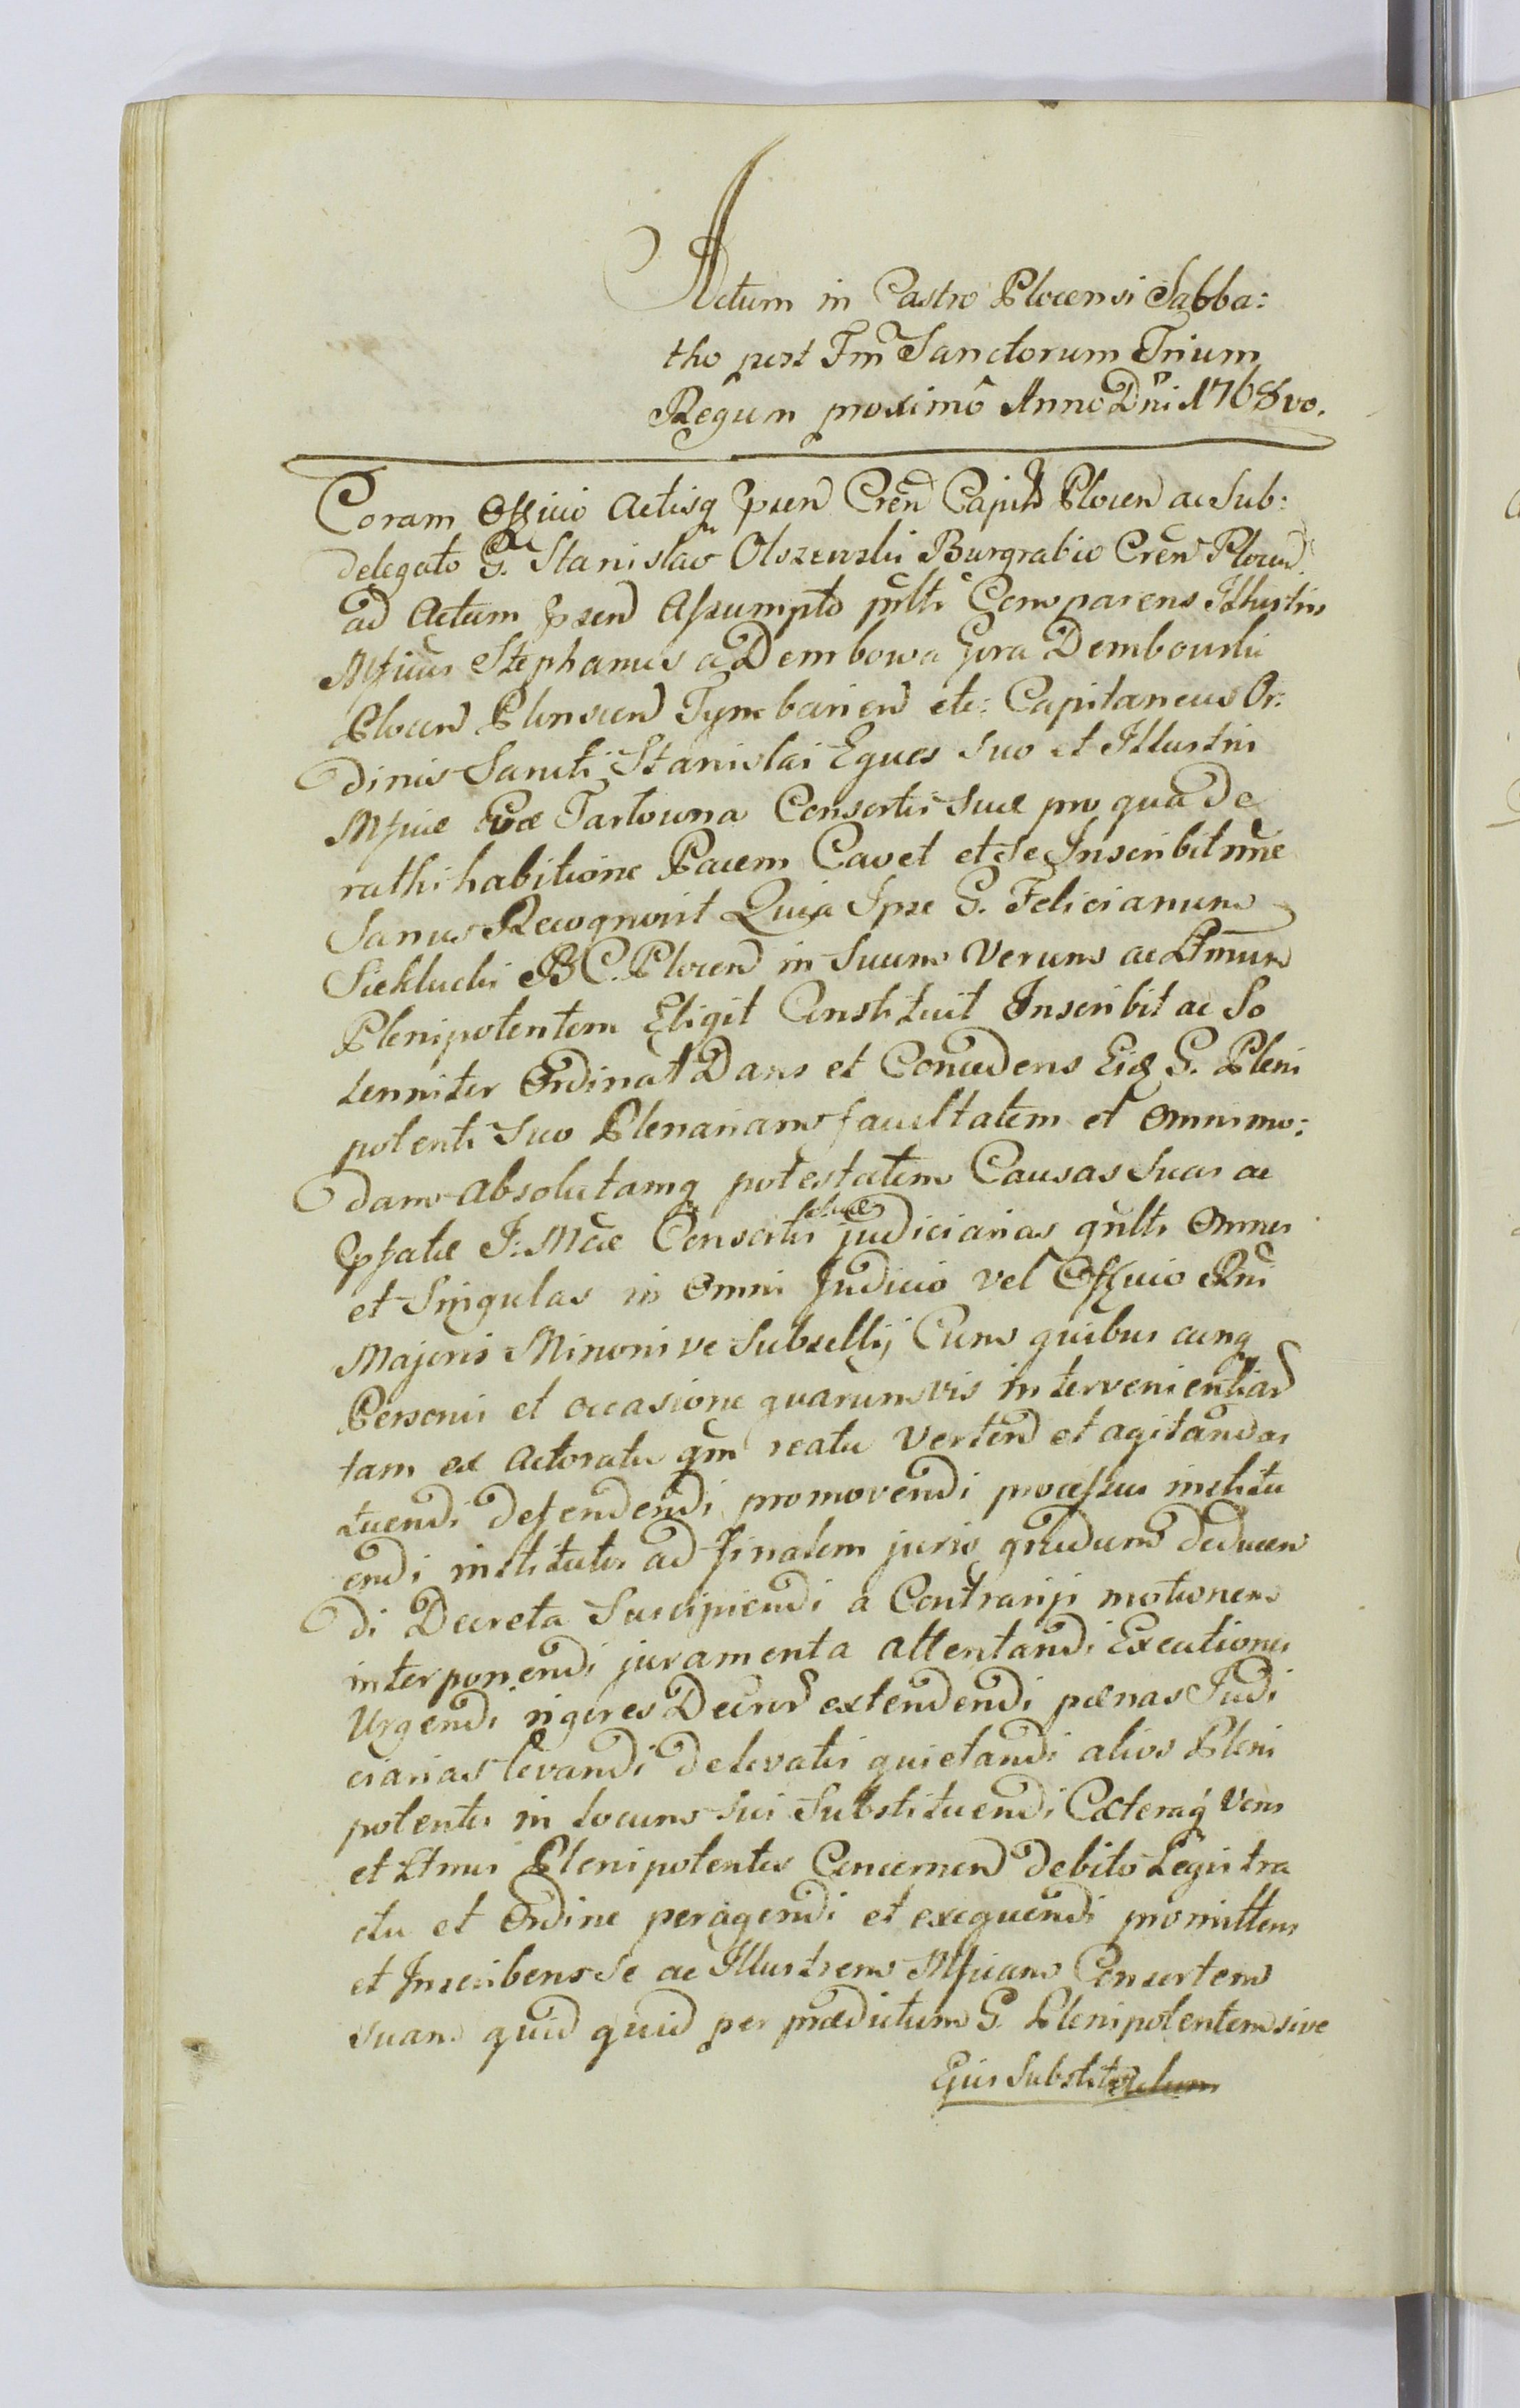 Actum in Castro Plocensi Sabba:
tho post Fm Sanctorum Trium
Regum proximô Anno Dni 1768vo.
Coram Officio Actisq pñen Cren Capitl Plocen ac Sub:
delegato G. Stanislao Olszewski Burgrabio Cren Plocen
ad Actum pñsen Assumpto pñlti Comparens Illustris
Mficus Stephanus a Dembowa Gora Dembowski
Plocen Plonscen Tymbarien etc: Capitaneus Or:
dinis Sancti Stanislai Eques suo et Illustris
Mficæ Evæ Tartowna Consortis suæ pro qua de
rathihabitione Pacem Cavet et se Inscribit nñe
Sanus Recognovit Quia Ipse G. Felicianum
Sieklucki B C. Plocen in suum Verum ac Ltmum
Plenipotentem Eligit Constituit Inscribit ac So
lenniter Ordinat Dans et Concedens Eid G. Pleni
potenti suo Plenariam facultatem et omnimo:
dam Absolutamq potestatem Causas suas ac
Præfatæ I: Mcæ Consortis suæ judiciarias gñlti omnes
et Singulas in omni Judicio vel Officio Rni
Majoris Minorisve Subsellij Cum quibus cunq
Personis et occasione quarumvis intervenientiar
tam ex Actoratu qm reatu Verten et agitandas
tuendi defendendi promovendi processus institu
endi institutes ad finalem juris gradum deducen
di Decreta Suscipiendi a Contrarijs motionem
interponendi juramenta attentandi Executiones
Urgendi rigores Decror extendendi pænas Judi
ciarias levandi de levatis quietandi alios Pleni
potentes in locum sui Substituendi Cæteraq Veros
et Ltmos Plenipotentes Concernen debito Legis tra
ctu et Ordine peragendi et exequendi promittens
et Inscribens se ac Illustrem Mficam Consortem
suam quid quid per prædictum G. Plenipotentem sive
Ejus Substitutum